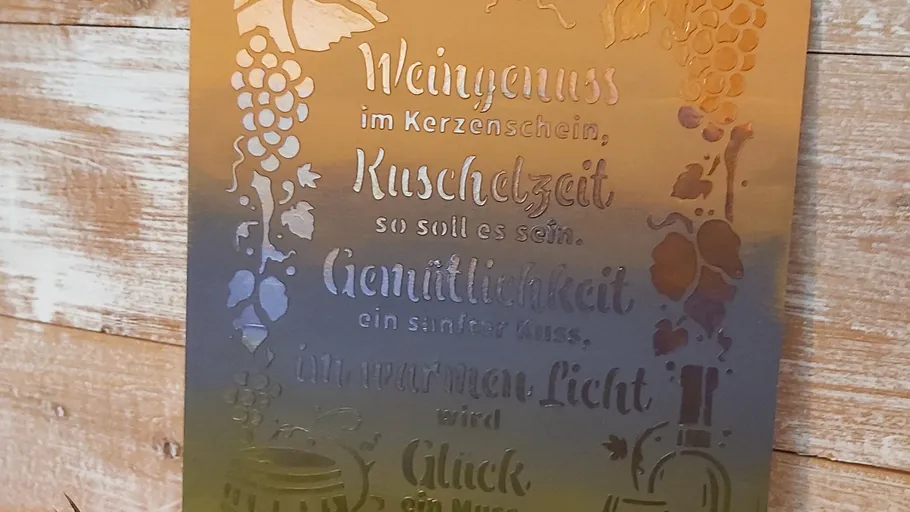 Weingenuss
im Kerzenschein,
Kuschelzeit
so soll es sein.
Gemütlichkeit
ein sanfter Kuss,
im warmen Licht
wird
Glück
ein Muss